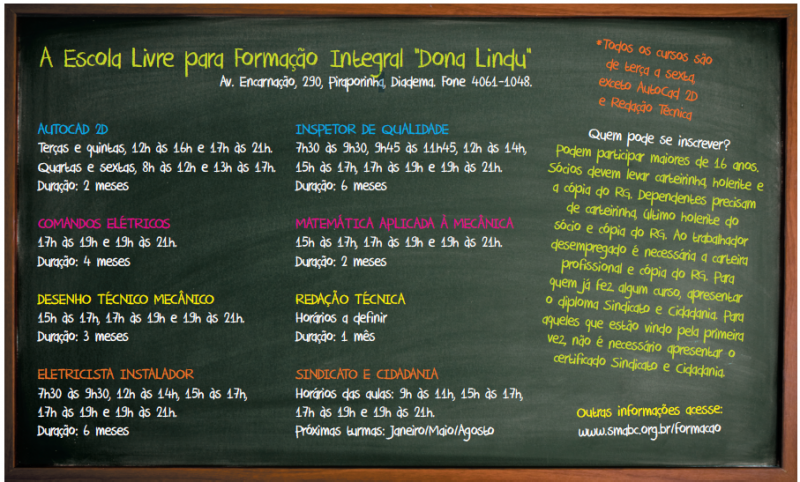 A Escola Livre para Formação Integral "Dona Lindu"
Av. Encarnação, 290, Piraporinha, Diadema. Fone 4061-1048.
AUTOCAD 2D
Terças e quintas, 12h às 16h e 17h às 21h.
Quartas e sextas, 8h às 12h e 13h às 17h.
Duração: 2 meses
COMANDOS ELÉTRICOS
17h às 19h e 19h às 21h.
Duração: 4 meses
DESENHO TÉCNICO MECÂNICO
15h às 17h, 17h às 19h e 19h às 21h.
Duração: 3 meses
ELETRICISTA INSTALADOR
7h30 às 9h30, 12h às 14h, 15h às 17h,
17h às 19h e 19h às 21h.
Duração: 6 meses
INSPETOR DE QUALIDADE
7h30 às 9h30, 9h45 às 11h45, 12h às 14h,
15h às 17h, 17h às 19h e 19h às 21h.
Duração: 6 meses
MATEMÁTICA APLICADA À MECÂNICA
15h às 17h, 17h às 19h e 19h às 21h.
Duração: 2 meses
REDAÇÃO TÉCNICA
Horários a definir
Duração: 1 mês
SINDICATO E CIDADANIA
Horários das aulas: 9h às 11h, 15h às 17h,
17h às 19h e 19h às 21h.
Próximas turmas: Janeiro/Maio/Agosto
*Todos os cursos são
de terça a sexta,
exceto AutoCad 2D
e Redação Técnica
Quem pode se inscrever?
Podem participar maiores de 16 anos.
Sócios devem levar carteirinha, holerite e
a cópia do RG. Dependentes precisam
de carteirinha, último holerite do
sócio e cópia do RG. Ao trabalhador
desempregado é necessária a carteira
profissional e cópia do RG. Para
quem já fez algum curso, apresentar
o diploma Sindicato e Cidadania. Para
aqueles que estão vindo pela primeira
vez, não é necessário apresentar o
certificado Sindicato e Cidadania.
Outras informações acesse:
www.smabc.org.br/formacao